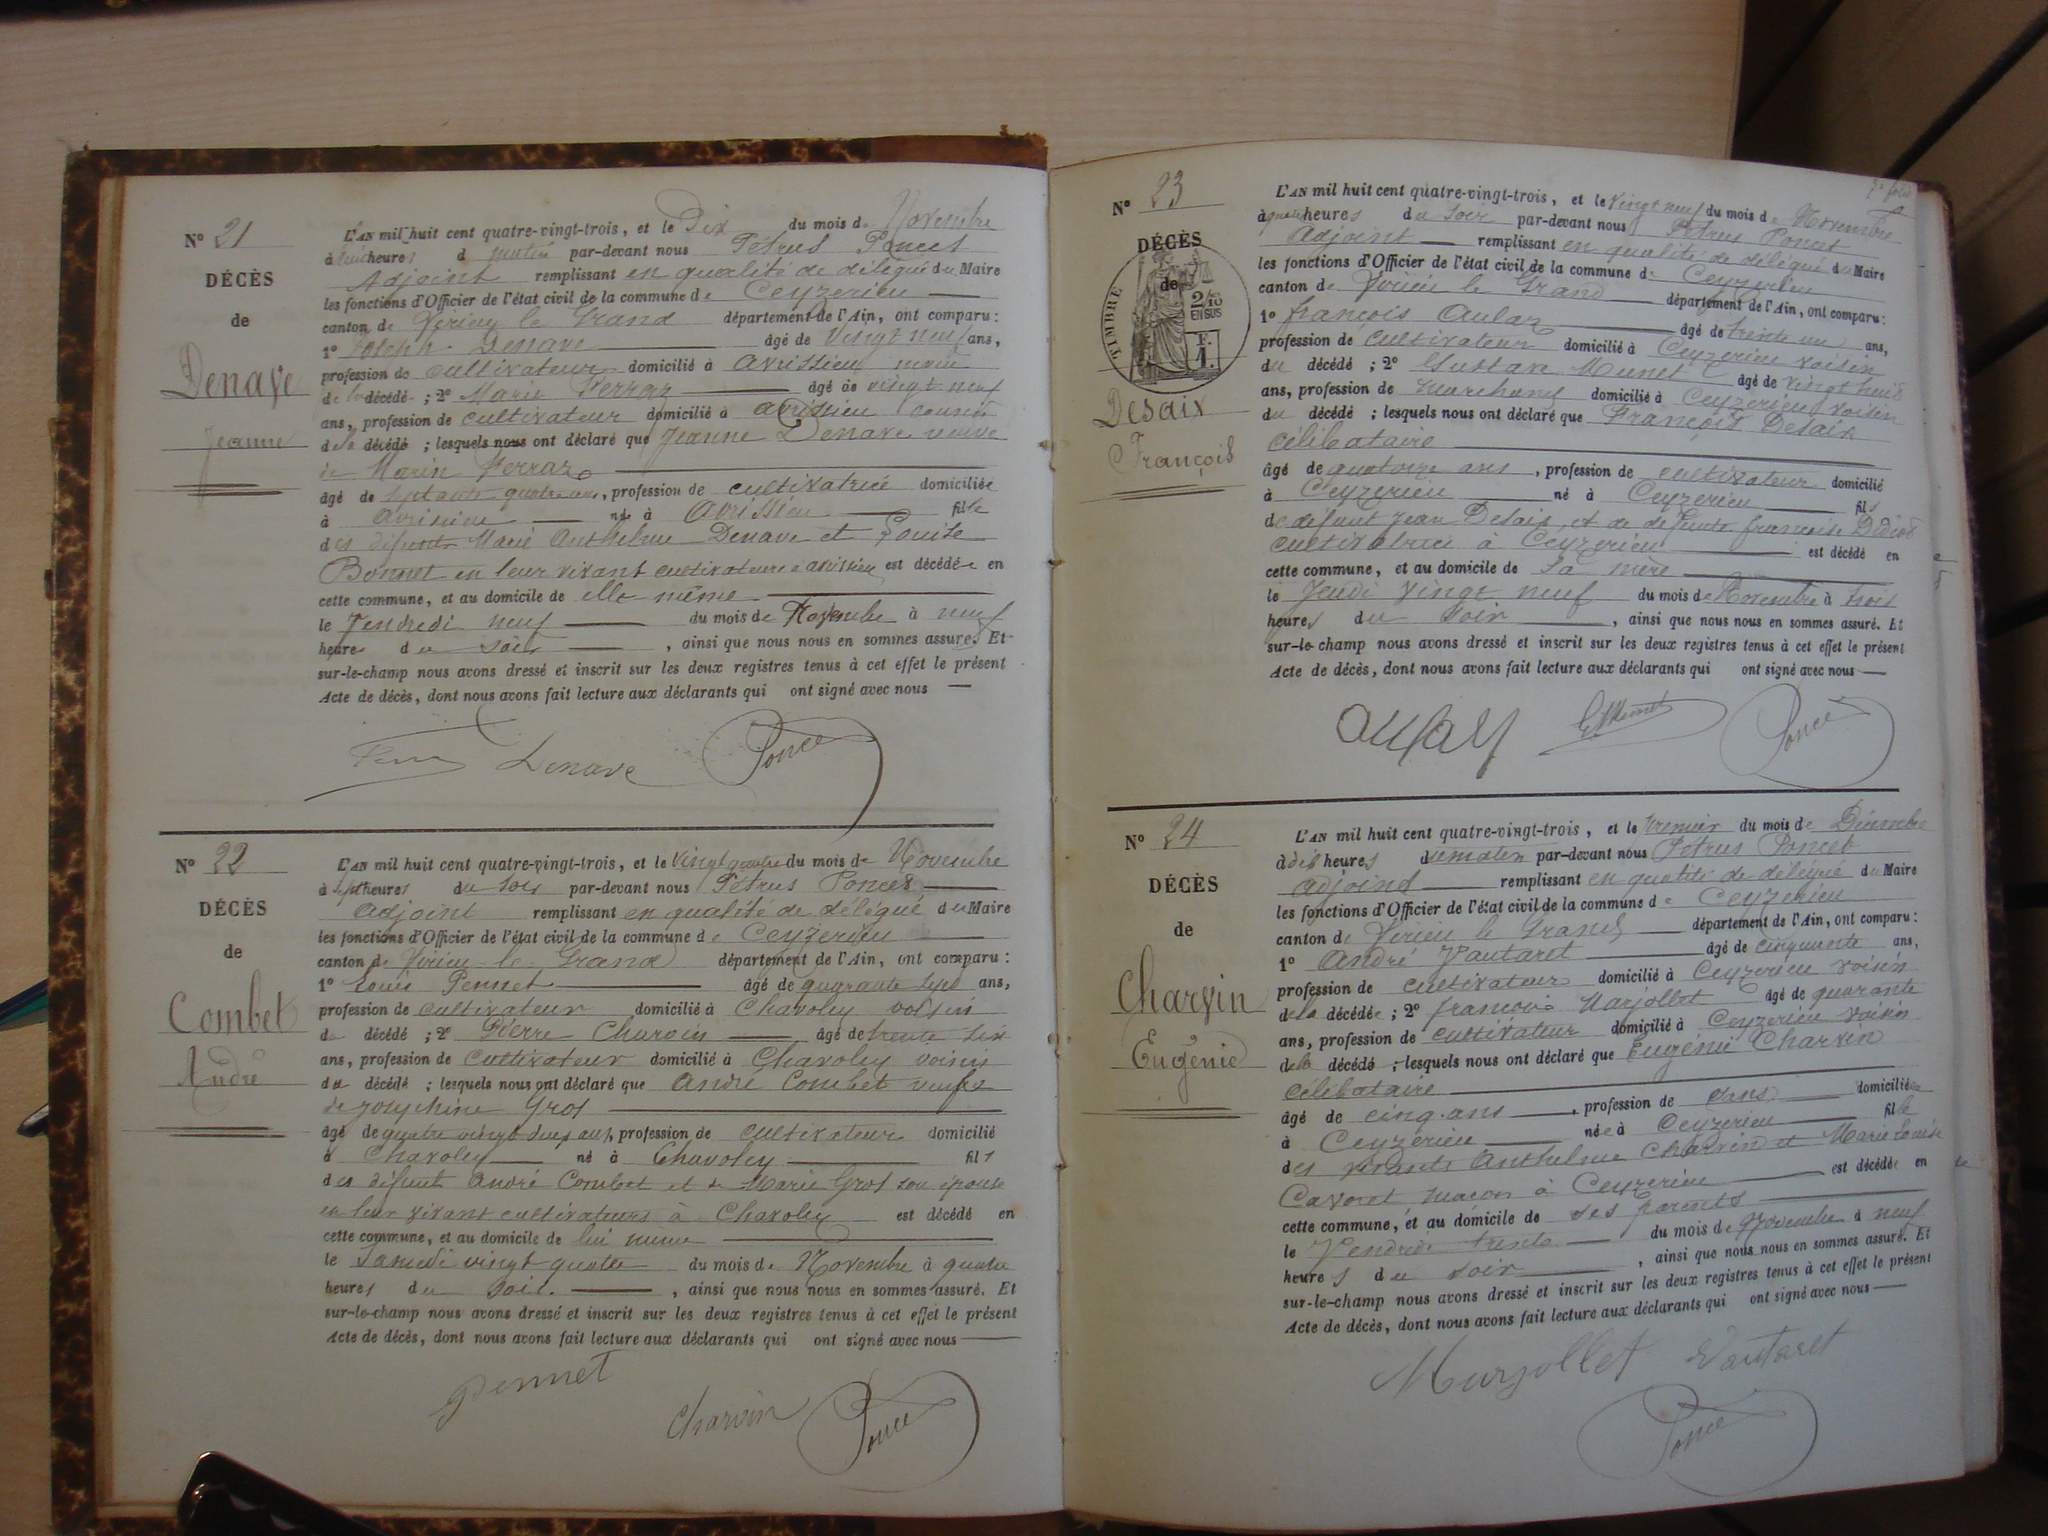 N° 21
DÉCÈS
de
Denave
Jeanne
L'AN mil huit cent quatre-vingt-trois, et le Dix du mois de Novembre
à huit heures d matin par-devant nous Pétrus Poncet
Adjoint remplissant en qualité de délégué du Maire
les fonctions d'Officier de l'état civil de la commune de Ceyzerieu
canton de Virieu le Grand département de l'Ain, ont comparu :
1° Joseph Denave âgé de vingt neuf ans,
profession de cultivateur domicilié à Avrissieu
de la décédé ; 2° Marie Perraz âgé de vingt neuf
ans, profession de cultivateur domicilié à Avrissieu cousin
de la décédé ; lesquels nous ont déclaré que Jeanne Denave veuve
de Marin Perraz
âgé de septante quatre ans, profession de cultivatrice domicilié
à Avrissieu né à Avrissieu fille
des défunts Marie Anthelme Denave et Louise
Bonnet en leur vivant cultivateurs à Avrissieu est décédée en
cette commune, et au domicile de elle même
le Vendredi neuf du mois de Novembre à neuf
heures du soir, ainsi que nous nous en sommes assuré. Et
sur-le-champ nous avons dressé et inscrit sur les deux registres tenus à cet effet le présent
Acte de décès, dont nous avons fait lecture aux déclarants qui ont signé avec nous
Denave Poncet
N° 22
DÉCÈS
de
Combet
André
L'AN mil huit cent quatre-vingt-trois, et le vingt quatre du mois de Novembre
à sept heures du soir par-devant nous Pétrus Poncet
Adjoint remplissant en qualité de délégué du Maire
les fonctions d'Officier de l'état civil de la commune de Ceyzerieu
canton de Virieu-le-Grand département de l'Ain, ont comparu :
1° Louis Pennet âgé de quarante sept ans,
profession de cultivateur domicilié à Chavoley voisin
de décédé ; 2° Pierre Charvin âgé de trente six
ans, profession de cultivateur domicilié à Chavoley voisin
du décédé ; lesquels nous ont déclaré que André Combet veuf
de Josephine Gros
âgé de quatre vingt deux ans, profession de cultivateur domicilié
à Chavoley né à Chavoley fils
des défunts André Combet et de Marie Gros son épouse
en leur vivant cultivateurs à Chavoley est décédé en
cette commune, et au domicile de lui même
le Samedi vingt quatre du mois de Novembre à quatre
heures du soir, ainsi que nous nous en sommes assuré. Et
sur-le-champ nous avons dressé et inscrit sur les deux registres tenus à cet effet le présent
Acte de décès, dont nous avons fait lecture aux déclarants qui ont signé avec nous
Pennet
Charvin Poncet
N° 23
DÉCÈS
de
TIMBRE
2/10
EN SUS
F.
1.
Desaix
François
L'AN mil huit cent quatre-vingt-trois, et le vingt neuf du mois de Novembre
à quatre heures du soir par-devant nous Pétrus Poncet
Adjoint remplissant en qualité de délégué du Maire
les fonctions d'Officier de l'état civil de la commune de Ceyzerieu
canton de Virieu le Grand département de l'Ain, ont comparu :
1° françois Aulaz âgé de trente un ans,
profession de cultivateur domicilié à Ceyzerieu voisin
du décédé ; 2° Gustave Munet âgé de vingt huit
ans, profession de marchand domicilié à Ceyzerieu voisin
du décédé ; lesquels nous ont déclaré que François Desaix
célibataire
âgé de quatorze ans, profession de cultivateur domicilié
à Ceyzerieu né à Ceyzerieu fils
de défunt Jean Desaix et de defunte françoise
cultivatrice à Ceyzerieu est décédé en
cette commune, et au domicile de sa mère
le Jeudi vingt neuf du mois de Novembre à trois
heures du soir, ainsi que nous nous en sommes assuré. Et
sur-le-champ nous avons dressé et inscrit sur les deux registres tenus à cet effet le présent
Acte de décès, dont nous avons fait lecture aux déclarants qui ont signé avec nous
Aulaz Poncet
N° 24
DÉCÈS
de
Charvin
Eugénie
L'AN mil huit cent quatre-vingt-trois, et le premier du mois de Décembre
à dix heures du matin par-devant nous Pétrus Poncet
adjoint remplissant en qualité de délégué du Maire
les fonctions d'Officier de l'état civil de la commune de Ceyzerieu
canton de Virieu le Grand département de l'Ain, ont comparu :
1° André Vautaret âgé de cinquante ans,
profession de cultivateur domicilié à Ceyzerieu voisin
de la décédée ; 2° françois Marjollet âgé de quarante
ans, profession de cultivateur domicilié à Ceyzerieu voisin
de la décédé ; lesquels nous ont déclaré que Eugénie Charvin
célibataire
âgé de cinq ans, profession de sans domiciliée
à Ceyzerieu née à Ceyzerieu fille
des vivants Anthelme Charvin et Marie Louise
Cavoret maçon à Ceyzerieu est décédée en
cette commune, et au domicile de ses parents
le Vendredi trente du mois de Novembre à neuf
heures du soir, ainsi que nous nous en sommes assuré. Et
sur-le-champ nous avons dressé et inscrit sur les deux registres tenus à cet effet le présent
Acte de décès, dont nous avons fait lecture aux déclarants qui ont signé avec nous
Marjollet Vautaret
Poncet